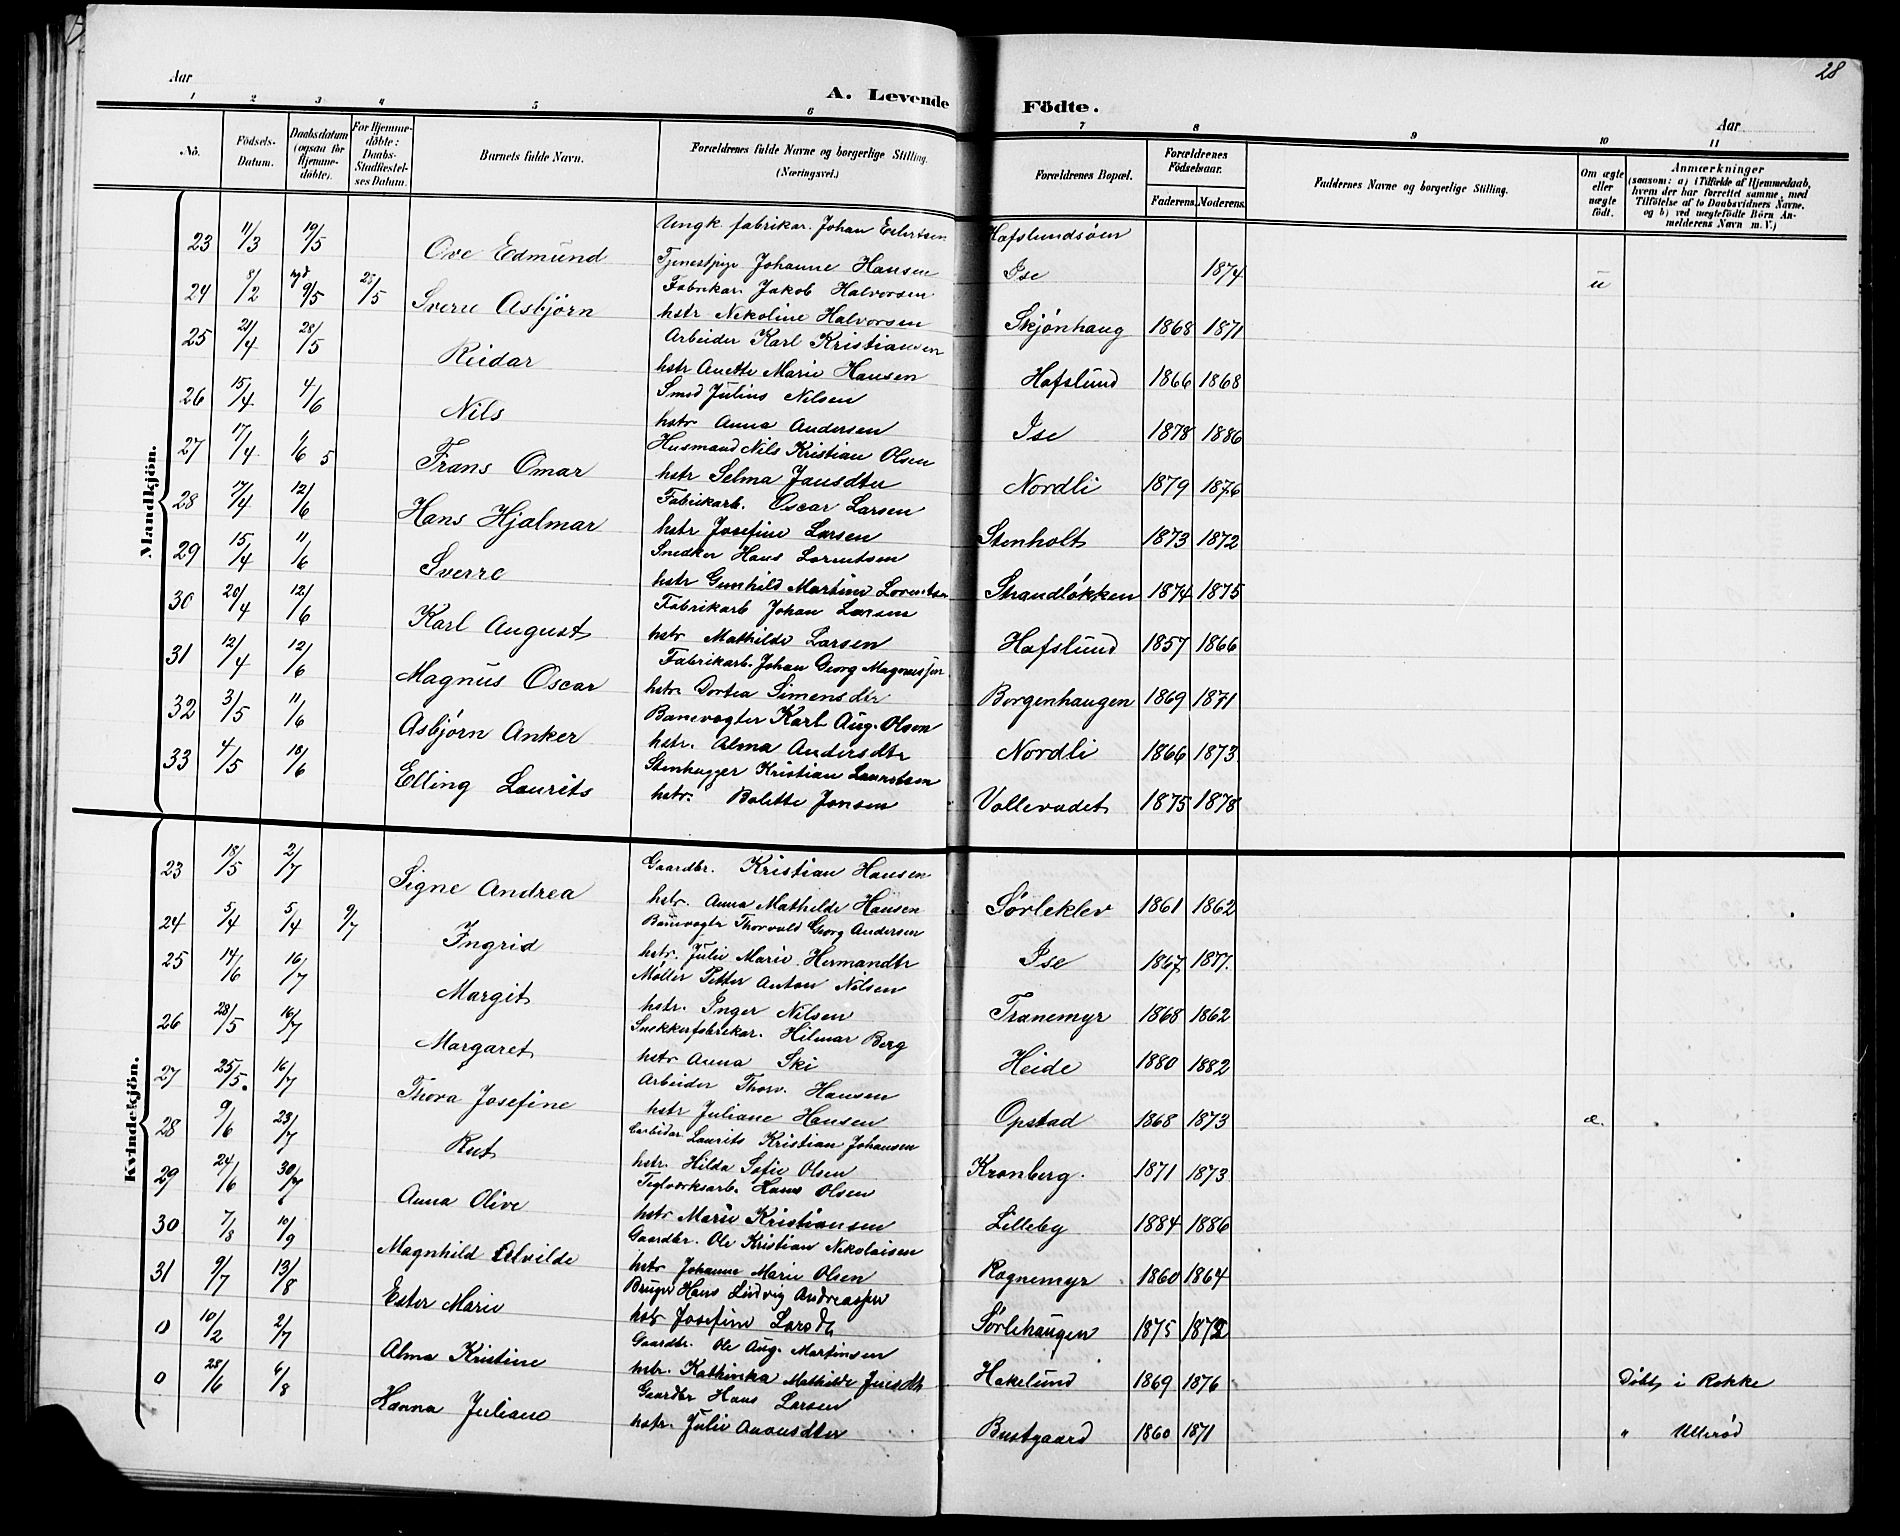 28
Aar
A. Levende Födte.
Aar
1 2 3 4 5 6 7 8 9 10 11
No.
Födsels-Datum.
Daabsdatum (ogsaa for Hjemme-döbte).
For Hjemme-döbte: Daabs-Stadfæstel-ses Datum.
Barnets fulde Navn.
Forældrenes fulde Navne og borgerlige Stilling. (Næringsvei.)
Forældrenes Bopæl.
Forældrenes Födselsaar.
Faderens. Moderens.
Faddernes Navne og borgerlige Stilling.
Om ægte eller uægte födt.
Anmærkninger
(saasom: a) i Tilfælde af Hjemmedaab,
hvem der har forrettet samme, med
Tilföielse af to Daabsvidners Navne.
og b) ved uægtefödte Börn An-
melderens Navn m. V.)
Mandkjön.
Ungk. fabrikar. Johan Eilertsen Hafslundsöen
23 11/3 19/5 Ove Edmund Tjenestpige Johanne Hansen Ise 1874 u
Fabrikar. Jakob Halvorsen
24 8/2 9/5 25/5 Sverre Asbjörn hstr Nikoline Halvorsen Skjönhaug 1868 1871
Arbeider Karl Kristiansen
25 21/4 28/5 Reidar hstr Anette Marie Hansen Hafslund 1866 1868
Smed Julius Nilsen
26 15/4 4/6 Nils hstr Anna Andersen Ise 1878 1886
Husmand Nils Kristian Olsen
27 17/4 Frans Omar hstr Selma Jansdter Nordli 1879 1876
Fabrikarb. Oscar Larsen
28 17/4 12/6 Hans Hjalmar hstr Josefine Larsen Stenholt 1873 1872
Snedker Hans Lorentsen
29 15/4 11/6 Sverre hstr Gunhild Martine Lorentsen Strandlökken 1874 1875
Fabrikarb Johan Larsen
30 20/4 12/6 Karl August hstr Mathilde Larsen Hafslund 1857 1866
Fabrikarb. Johan Georg Magnussen
31 12/4 12/6 Magnus Oscar hstr. Dortea Simensdtr Borgenhaugen 1869 1871
Banevogter Karl Aug. Olsen
32 3/5 11/6 Asbjörn Anker hstr. Alma Andersdtr Nordli 1866 1873
Stenhugger Kristian Lauritsen
33 4/5 18/6 Elling Laurits hstr. Bolette Jonsen Vollevadet 1875 1878
Kvindekjön.
Gaardbr. Kristian Hansen
23 18/5 2/7 Signe Andrea hstr. Anna Mathilde Hansen Sörleklev 1861 1862
Banevogtr Thorvald Georg Andersen
24 5/4 5/4 9/7 Ingrid hstr. Julie Marie Hermandtr Ise 1867 1877.
Møller Petter Anton Nilsen
25 14/6 16/7 Margit hstr. Inger Nilsen Tranemyr 1868 1862
Snekkerfabrikar. Hilmar Berg
26 28/5 16/7 Margaret hstr Anna Ski Heide 1880 1882
Arbeider Thorv. Hansen
27 25/5. 16/7 Thora Josefine hstr Juliane Hansen Opstad 1868 1873 æ.
Laurits Kristian Johansen
28 9/6 23/7 Rut hstr. Hilda Sofie Olsen Kronberg. 1871 1873
Teglværksarb. Hans Olsen
29 24/6 30/7 Anna Olive hstr Marie Kristiansen Lilleby 1884 1886
Gaardbr. Ole Kristian Nikolaisen
30 7/8 10/9 Magnhild Alvilde hstr Johanne Marie Olsen Rognemyr 1860 1864
Bruger Hans Ludvig Andreassen
31 9/7 13/8 Ester Marie hstr Josefine Larsdtr Sörlihaugen 1875
Gaardbr. Ole Aug. Martinsen
0 10/2 2/7 Alma Kristine hstr. Kathinka Mathilde Hakelund 1869 1876 Döbt i Rokke
Gaardbr Hans Larsen
0 28/6 6/8 Hanna Juliane hstr. Julie Bustgaard 1860 1871 " Ulleröd